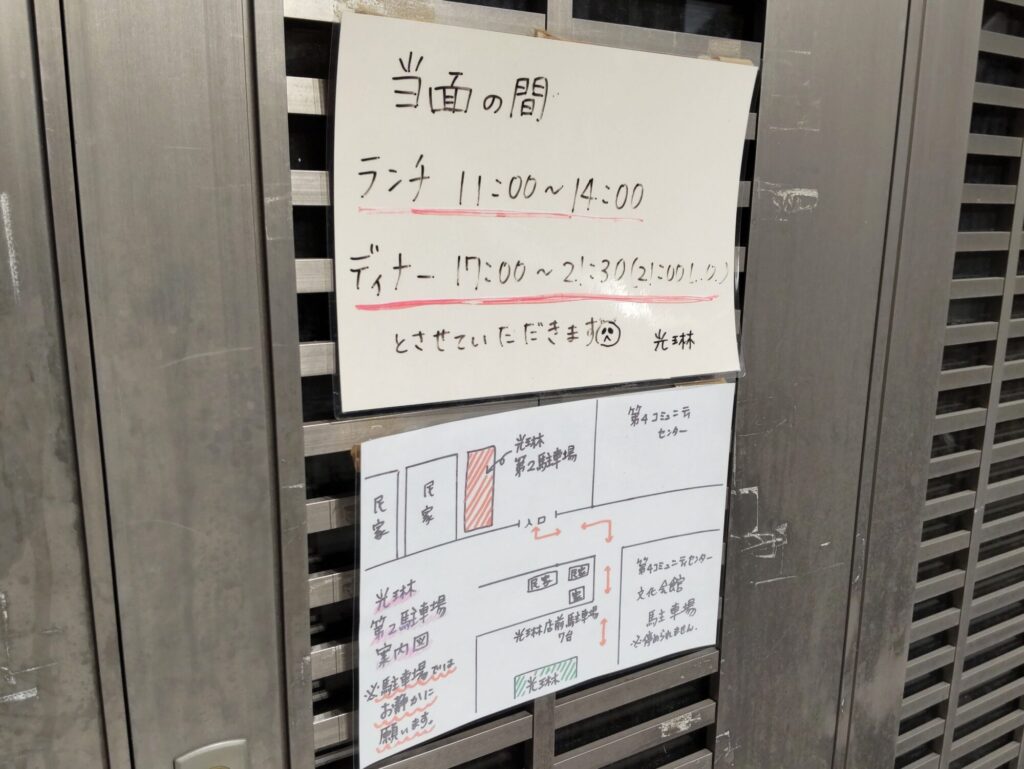 当面の間
ランチ 11:00～14:00
ディナー 17:00～21:30(21:00 L.O.)
とさせていただきます
光琳
第4コミュニティ
センター
光琳
第2駐車場
民家
民家
入口
民家
民家
第4コミュニティセンター
文化会館
駐車場
※停められません.
光琳店前駐車場
7台
光琳
光琳
第2駐車場
案内図
※駐車場では
お静かに
願います。